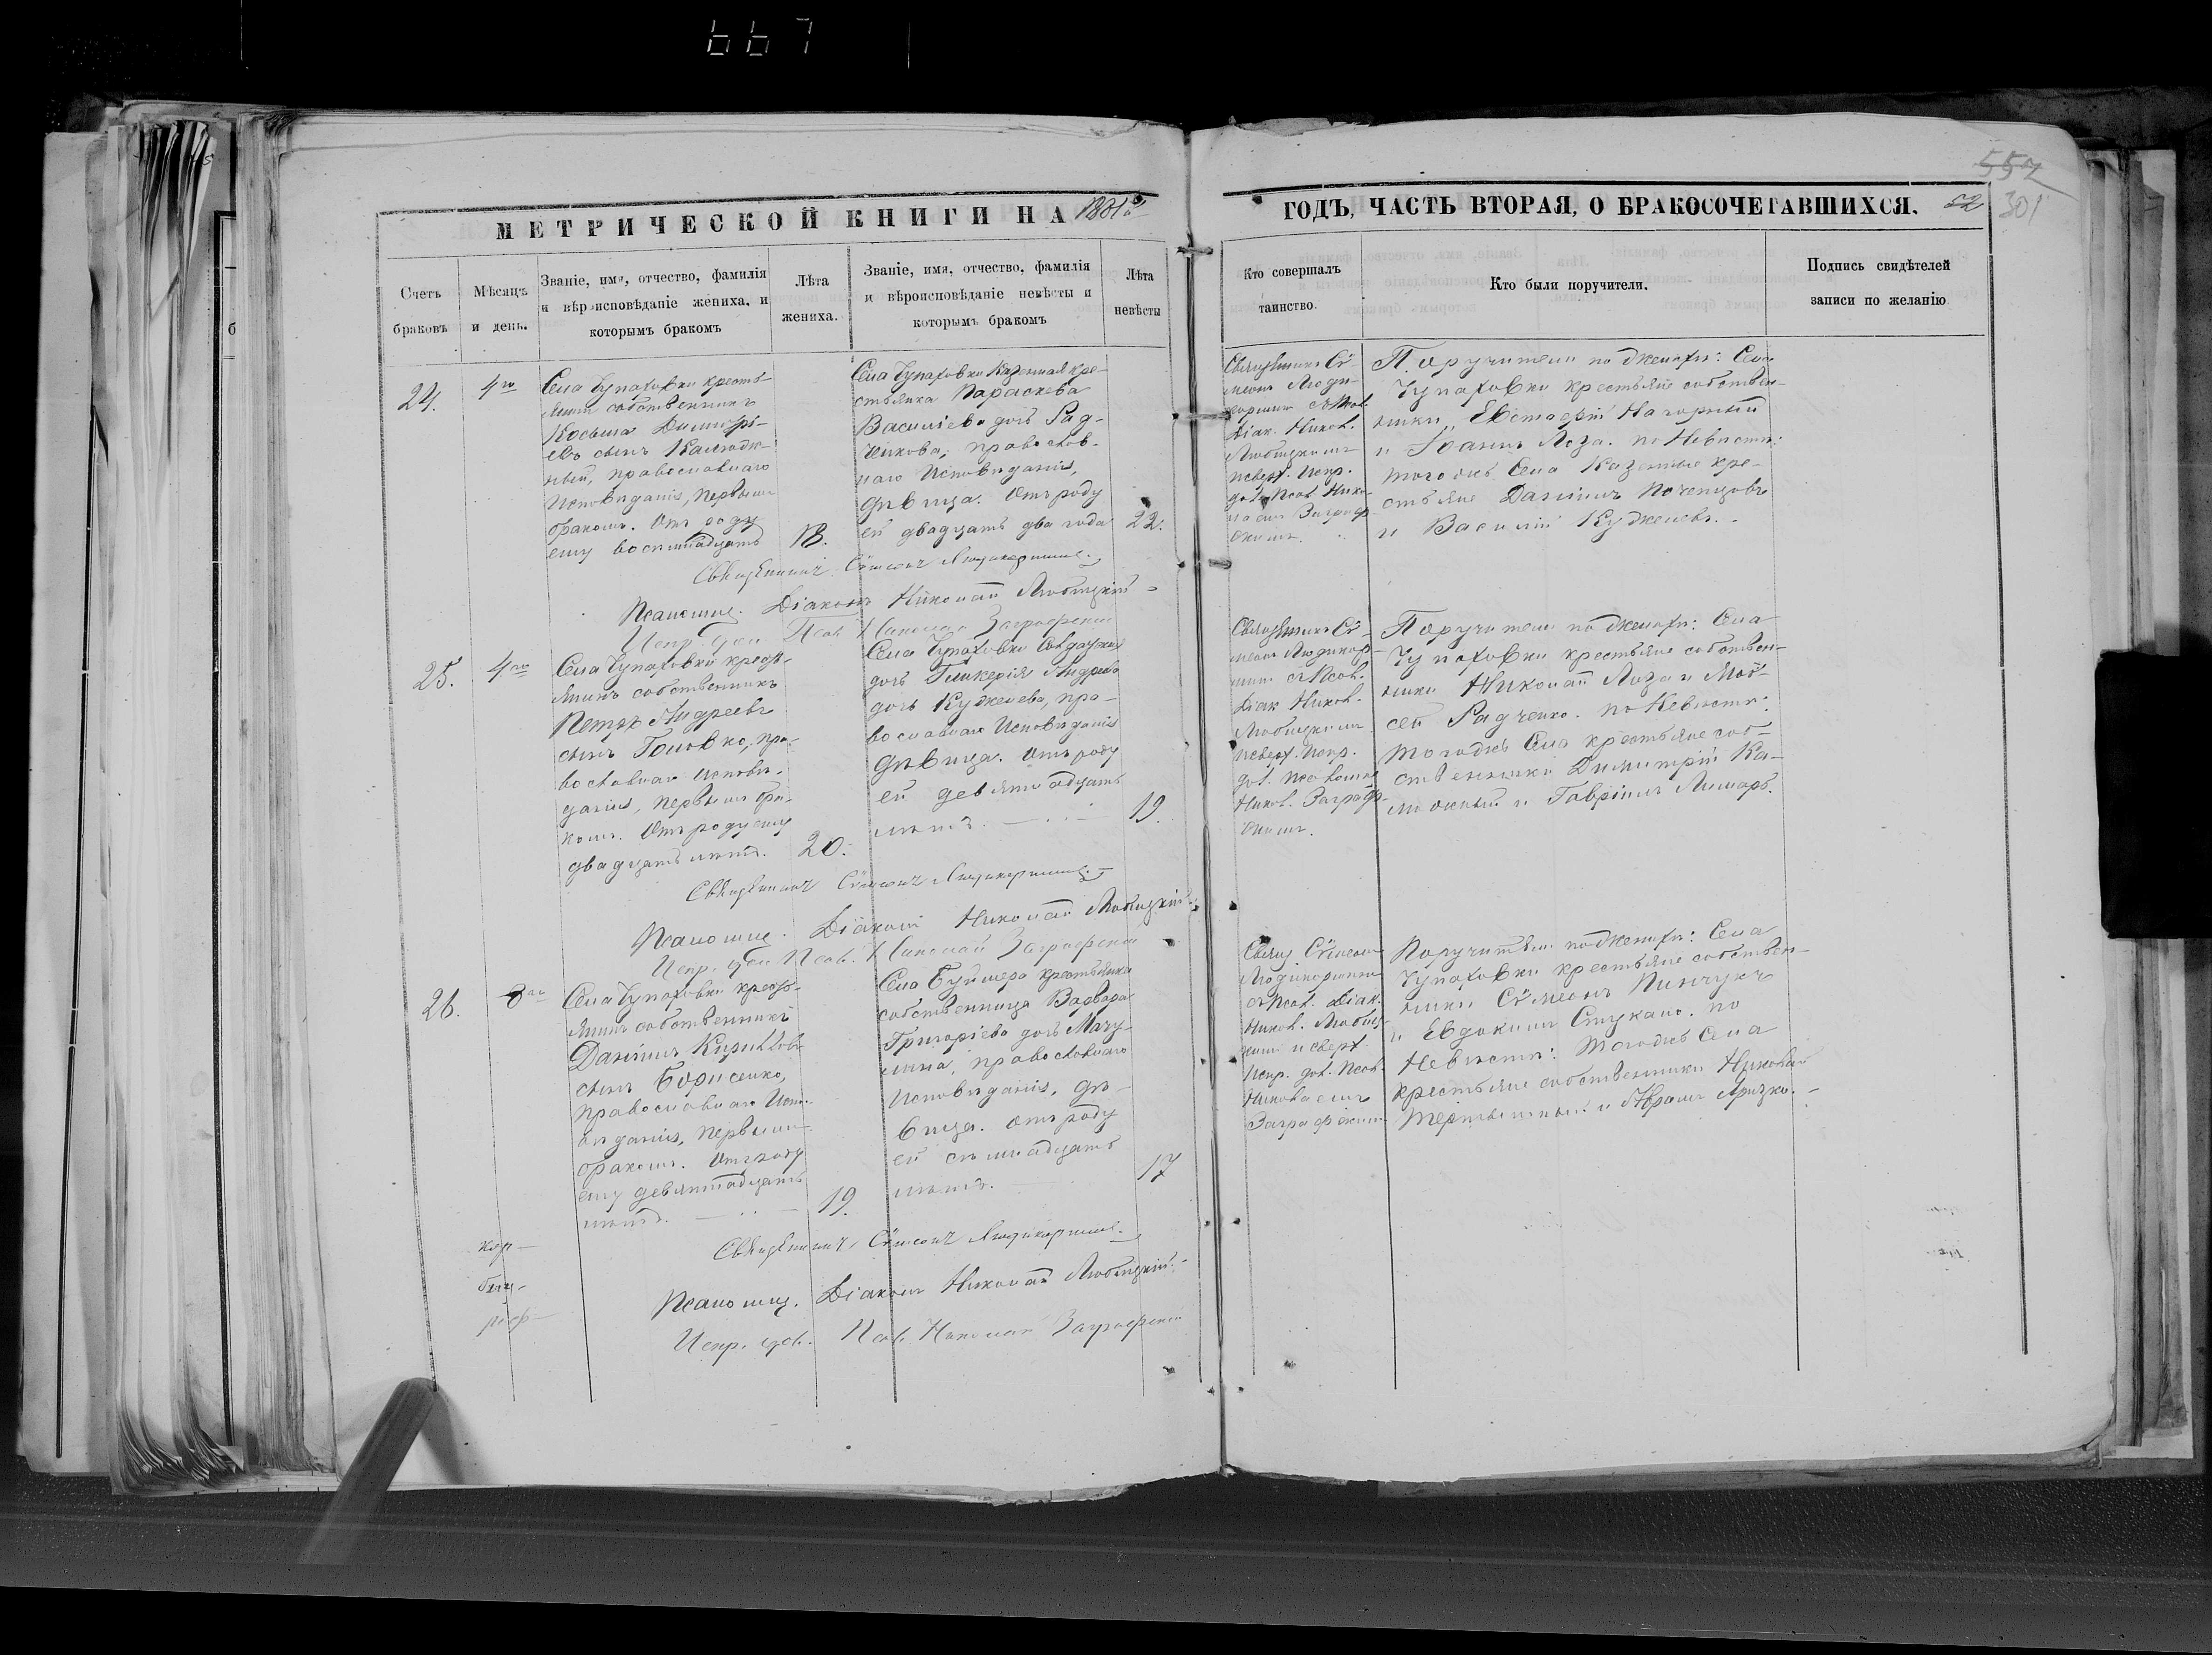 667
557
МЕТРИЧЕСКОЙ КНИГИ НА 1881й
ГОДЪ, ЧАСТЬ ВТОРАЯ, О БРАКОСОЧЕТАВШИХСЯ.
52 301
Счетъ
браковъ
Мѣсяцъ
и день.
Званіе, имя, отчество, фамилія
и вѣроисповѣданіе жениха, и
которымъ бракомъ
Лѣта
жениха.
Званіе, имя, отчество, фамилія
и вѣроисповѣданіе невѣсты и
которымъ бракомъ
Лѣта
невѣсты
Кто совершалъ
таинство.
Кто были поручители.
Подпись свидѣтелей
записи по желанію
24.
4го
Села Чупаховки кресть-
янинъ собственникъ
Косьма Димитрі-
евъ сынъ
ный, православнаго
Исповѣданія, первымъ
бракомъ. Отъ роду
ему восемнадцать
18.
Села Чупаховки Казенная кре-
стьянка Параскева
Василіева дочь Рад-
чикова, православ-
наго Исповѣданія,
дѣвица. Отъ роду
ей двадцать два года
22.
Священникъ Сѵ-
меонъ Люди-
коршинъ съ Псал.
Діак. Никол.
Любицкимъ
исверх. Испр.
дол. Псал. Нико-
лаемъ Заграф-
скимъ.
Поручители по женихѣ: Села
Чупаховки крестьяне собствен-
ники, Евстафій Нагорный
и Іоаннъ Лоза. по Невѣстѣ:
тогожъ Села Казенные кре-
стьяне Даніилъ Почепцовъ
и Василій Кужелевъ.
Священникъ Сѵмеонъ
Псаломщ. Діаконъ Николай Любицкій
Испр. дол. Псал. Николай Заграфскій
25.
4го
Села Чупаховки кресть-
янинъ собственникъ
Петръ Андреевъ
сынъ Головко, пра-
вославнаго исповѣ-
данія, первымъ бра-
комъ. Отъ роду ему
двадцать лѣтъ.
20.
Села Чупаховки Солдатская
дочь Гликерія Андреева
дочь Кужелева, пра-
вославнаго Исповѣданія
дѣвица. Отъ роду
ей девятнадцать
лѣтъ.
19.
Священникъ Сѵ-
меонъ Людикор-
шинъ съ Псал.
Діак Никол.
Любицкимъ
исверх. Испр.
дол. Псаломщ
Никол. Заграф-
скимъ.
Поручители по женихѣ: Села
Чупаховки крестьяне собствен-
ники Николай Лоза и Моѵ-
сей Радченко. по Невѣстѣ:
тогожъ Села крестьяне соб-
ственники Димитрій Ка-
и Гавріилъ Лимарь.
Священникъ Сѵмеонъ
Псаломщ. Діаконъ Николай Любицкій
Испр. дол. Псал. Николай Заграфскій
26.
8го
Села Чупаховки кресть-
янинъ собственникъ
Даніилъ Кирилловъ
сынъ Борисенко,
православнаго Испо-
вѣданія, первымъ
бракомъ. Отъ роду
ему девятнадцать
лѣтъ.
19.
Села Буймера крестьянка
собственница Варвара
Григоріева дочь Мачу-
лина, православнаго
Исповѣданія, дѣ-
вица. Отъ роду
ей семнадцать
лѣтъ.
17
Свящ. Сѵмеонъ
Людикоршинъ
съ Псал. Діак.
Никол. Любиц-
кимъ исверх
Испр. дол. Псал.
Николаемъ
Заграфскимъ
Поручители по женихѣ: Села
Чупаховки крестьяне собствен-
ники Сѵмеонъ Пинчукъ
и Евдокимъ Стукало. по
Невѣстѣ: тогожъ Села
крестьяне собственники Николай
и
Священникъ Сѵмеонъ
Псаломщ. Діаконъ Николай Любицкій
Испр. дол. Псал. Николай Заграфскій